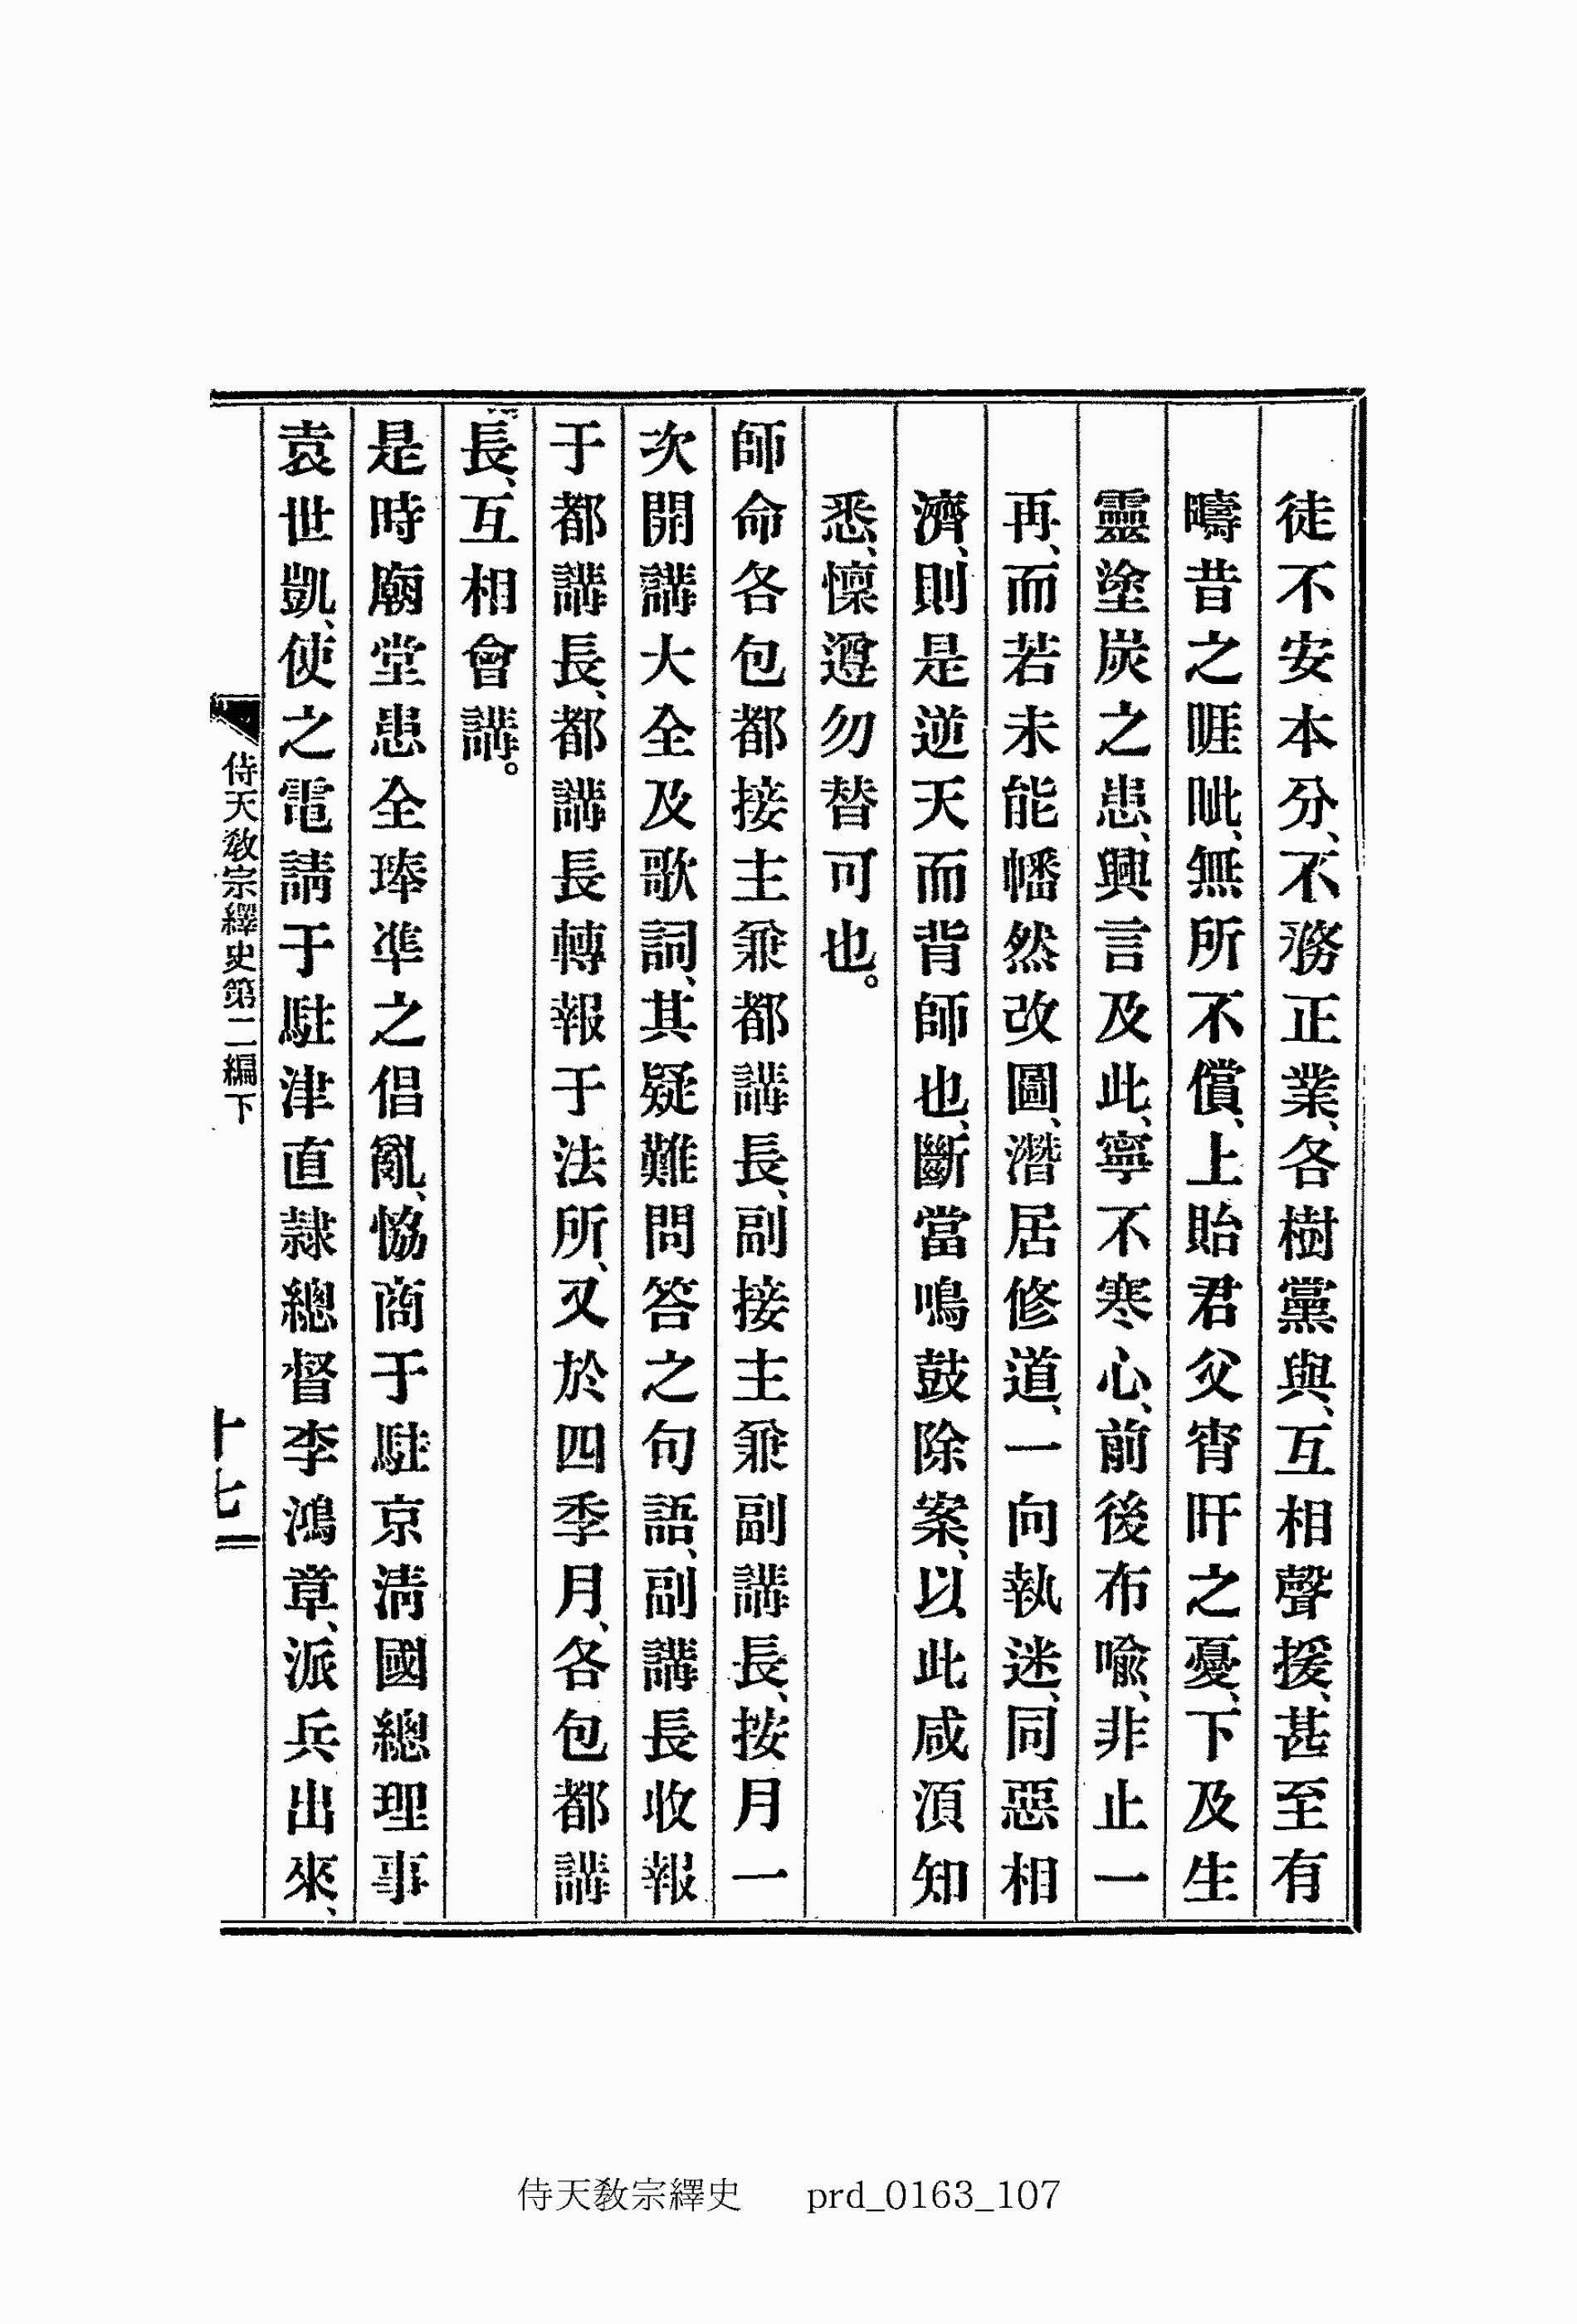 徒不安本分、不務正業、各樹黨與、互相聲援、甚至有
疇昔之睚眦、無所不償、上貽君父宵旰之憂、下及生
靈塗炭之患、興言及此、寧不寒心、前後布喩、非止一
再、而若未能幡然改圖、潛居修道、一向執迷、同惡相
濟、則是逆天而背師也、斷當鳴鼓除案、以此咸湏知
悉、懍遵勿替可也。
師命各包都接主兼都講長、副接主兼副講長、按月一
次開講大全及歌詞、其疑難問答之句語、副講長收報
于都講長、都講長轉報于法所、又於四季月、各包都講
長、互相會講。
是時廟堂患全琫凖之倡亂、恊商于駐京淸國總理事
袁世凱、使之電請于駐津直隸總督李鴻章、派兵出來、
侍天敎宗繹史第二編下
十七
侍天敎宗繹史 prd_0163_107